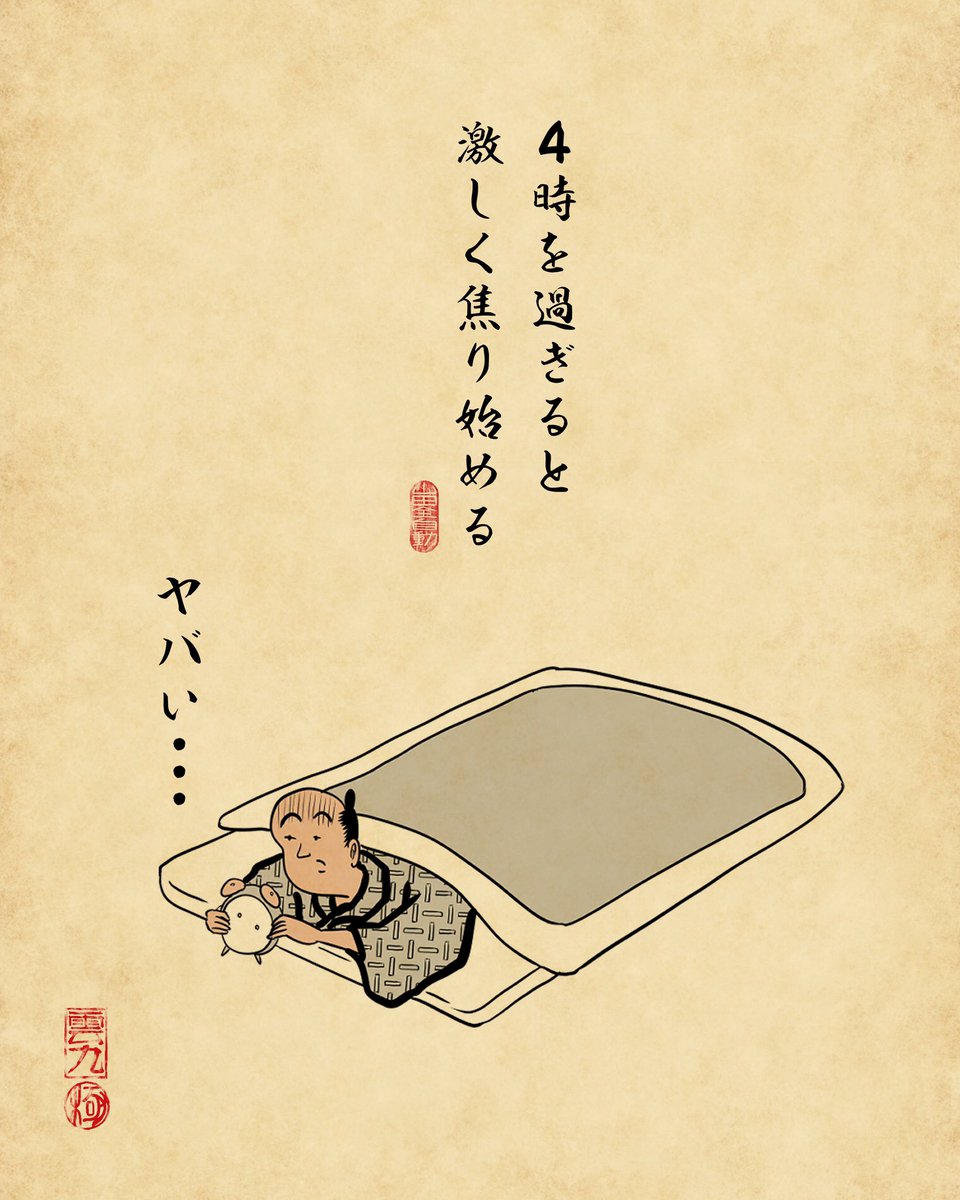 4時を過ぎると
激しく焦り始める
ヤバい・・・